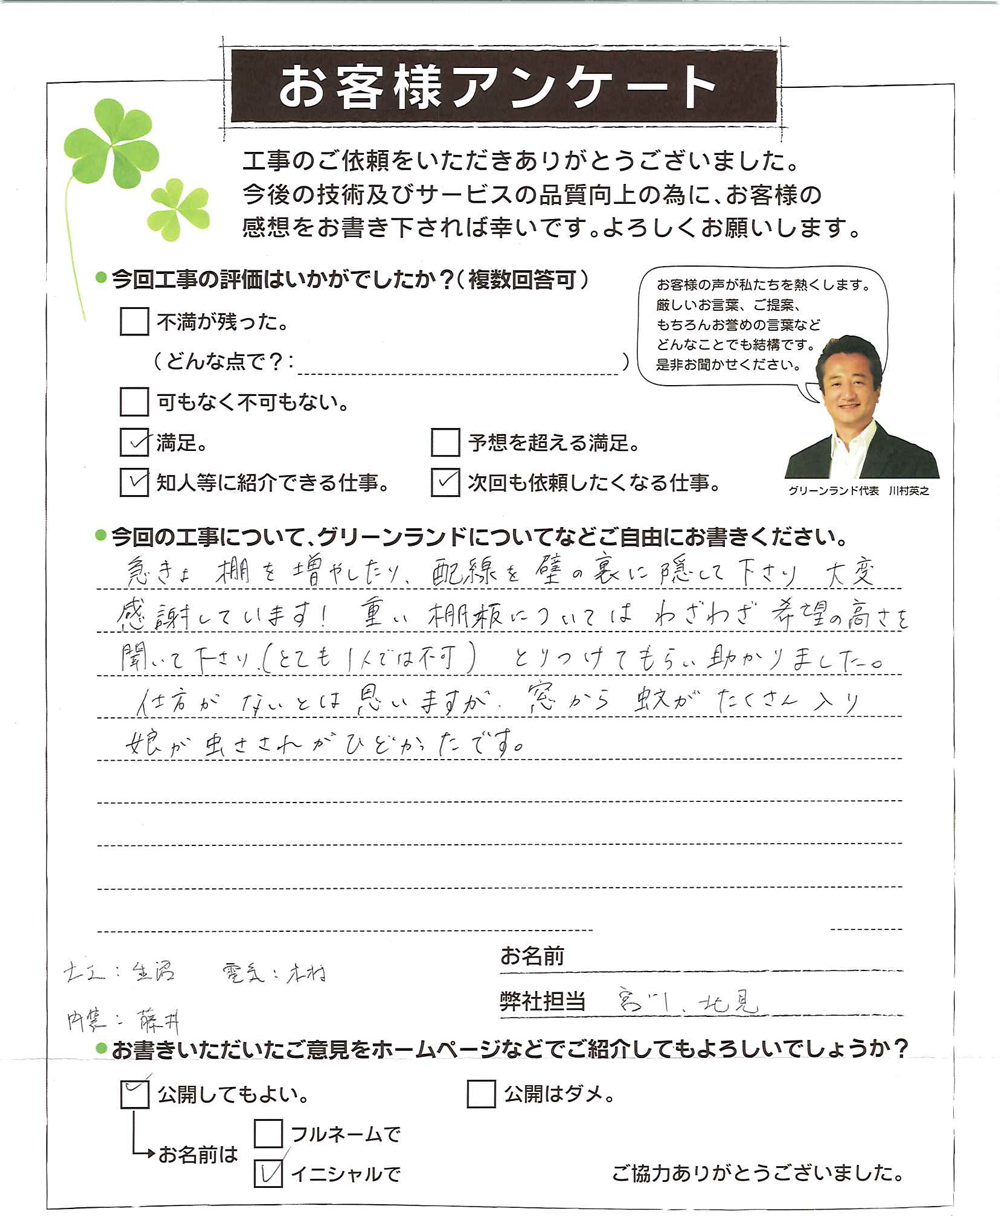 お客様アンケート
工事のご依頼をいただきありがとうございました。
今後の技術及びサービスの品質向上の為に、お客様の
感想をお書き下されば幸いです。よろしくお願いします。
今回工事の評価はいかがでしたか？（複数回答可）
不満が残った。
（どんな点で？：　　　）
可もなく不可もない。
満足。
予想を超える満足。
知人等に紹介できる仕事。
次回も依頼したくなる仕事。
お客様の声が私たちを熱くします。
厳しいお言葉、ご提案、
もちろんお誉めの言葉など
どんなことでも結構です。
是非お聞かせください。
グリーンランド代表　川村英之
今回の工事について、グリーンランドについてなどご自由にお書きください。
急きょ 棚を増やしたり、配線を壁の裏に隠して下さり 大変
感謝しています！ 重い棚板については わざわざ 希望の高さを
聞いて下さり、（とても1人では不可） とりつけてもらい助かりました。
仕方がないとは思いますが、窓から 蚊が たくさん入り
娘が虫さされがひどかったです。
お名前
大工：生沼　電気：木村
弊社担当　宮川、北見
内装：藤井
お書きいただいたご意見をホームページなどでご紹介してもよろしいでしょうか？
公開してもよい。
公開はダメ。
お名前は
フルネームで
イニシャルで
ご協力ありがとうございました。